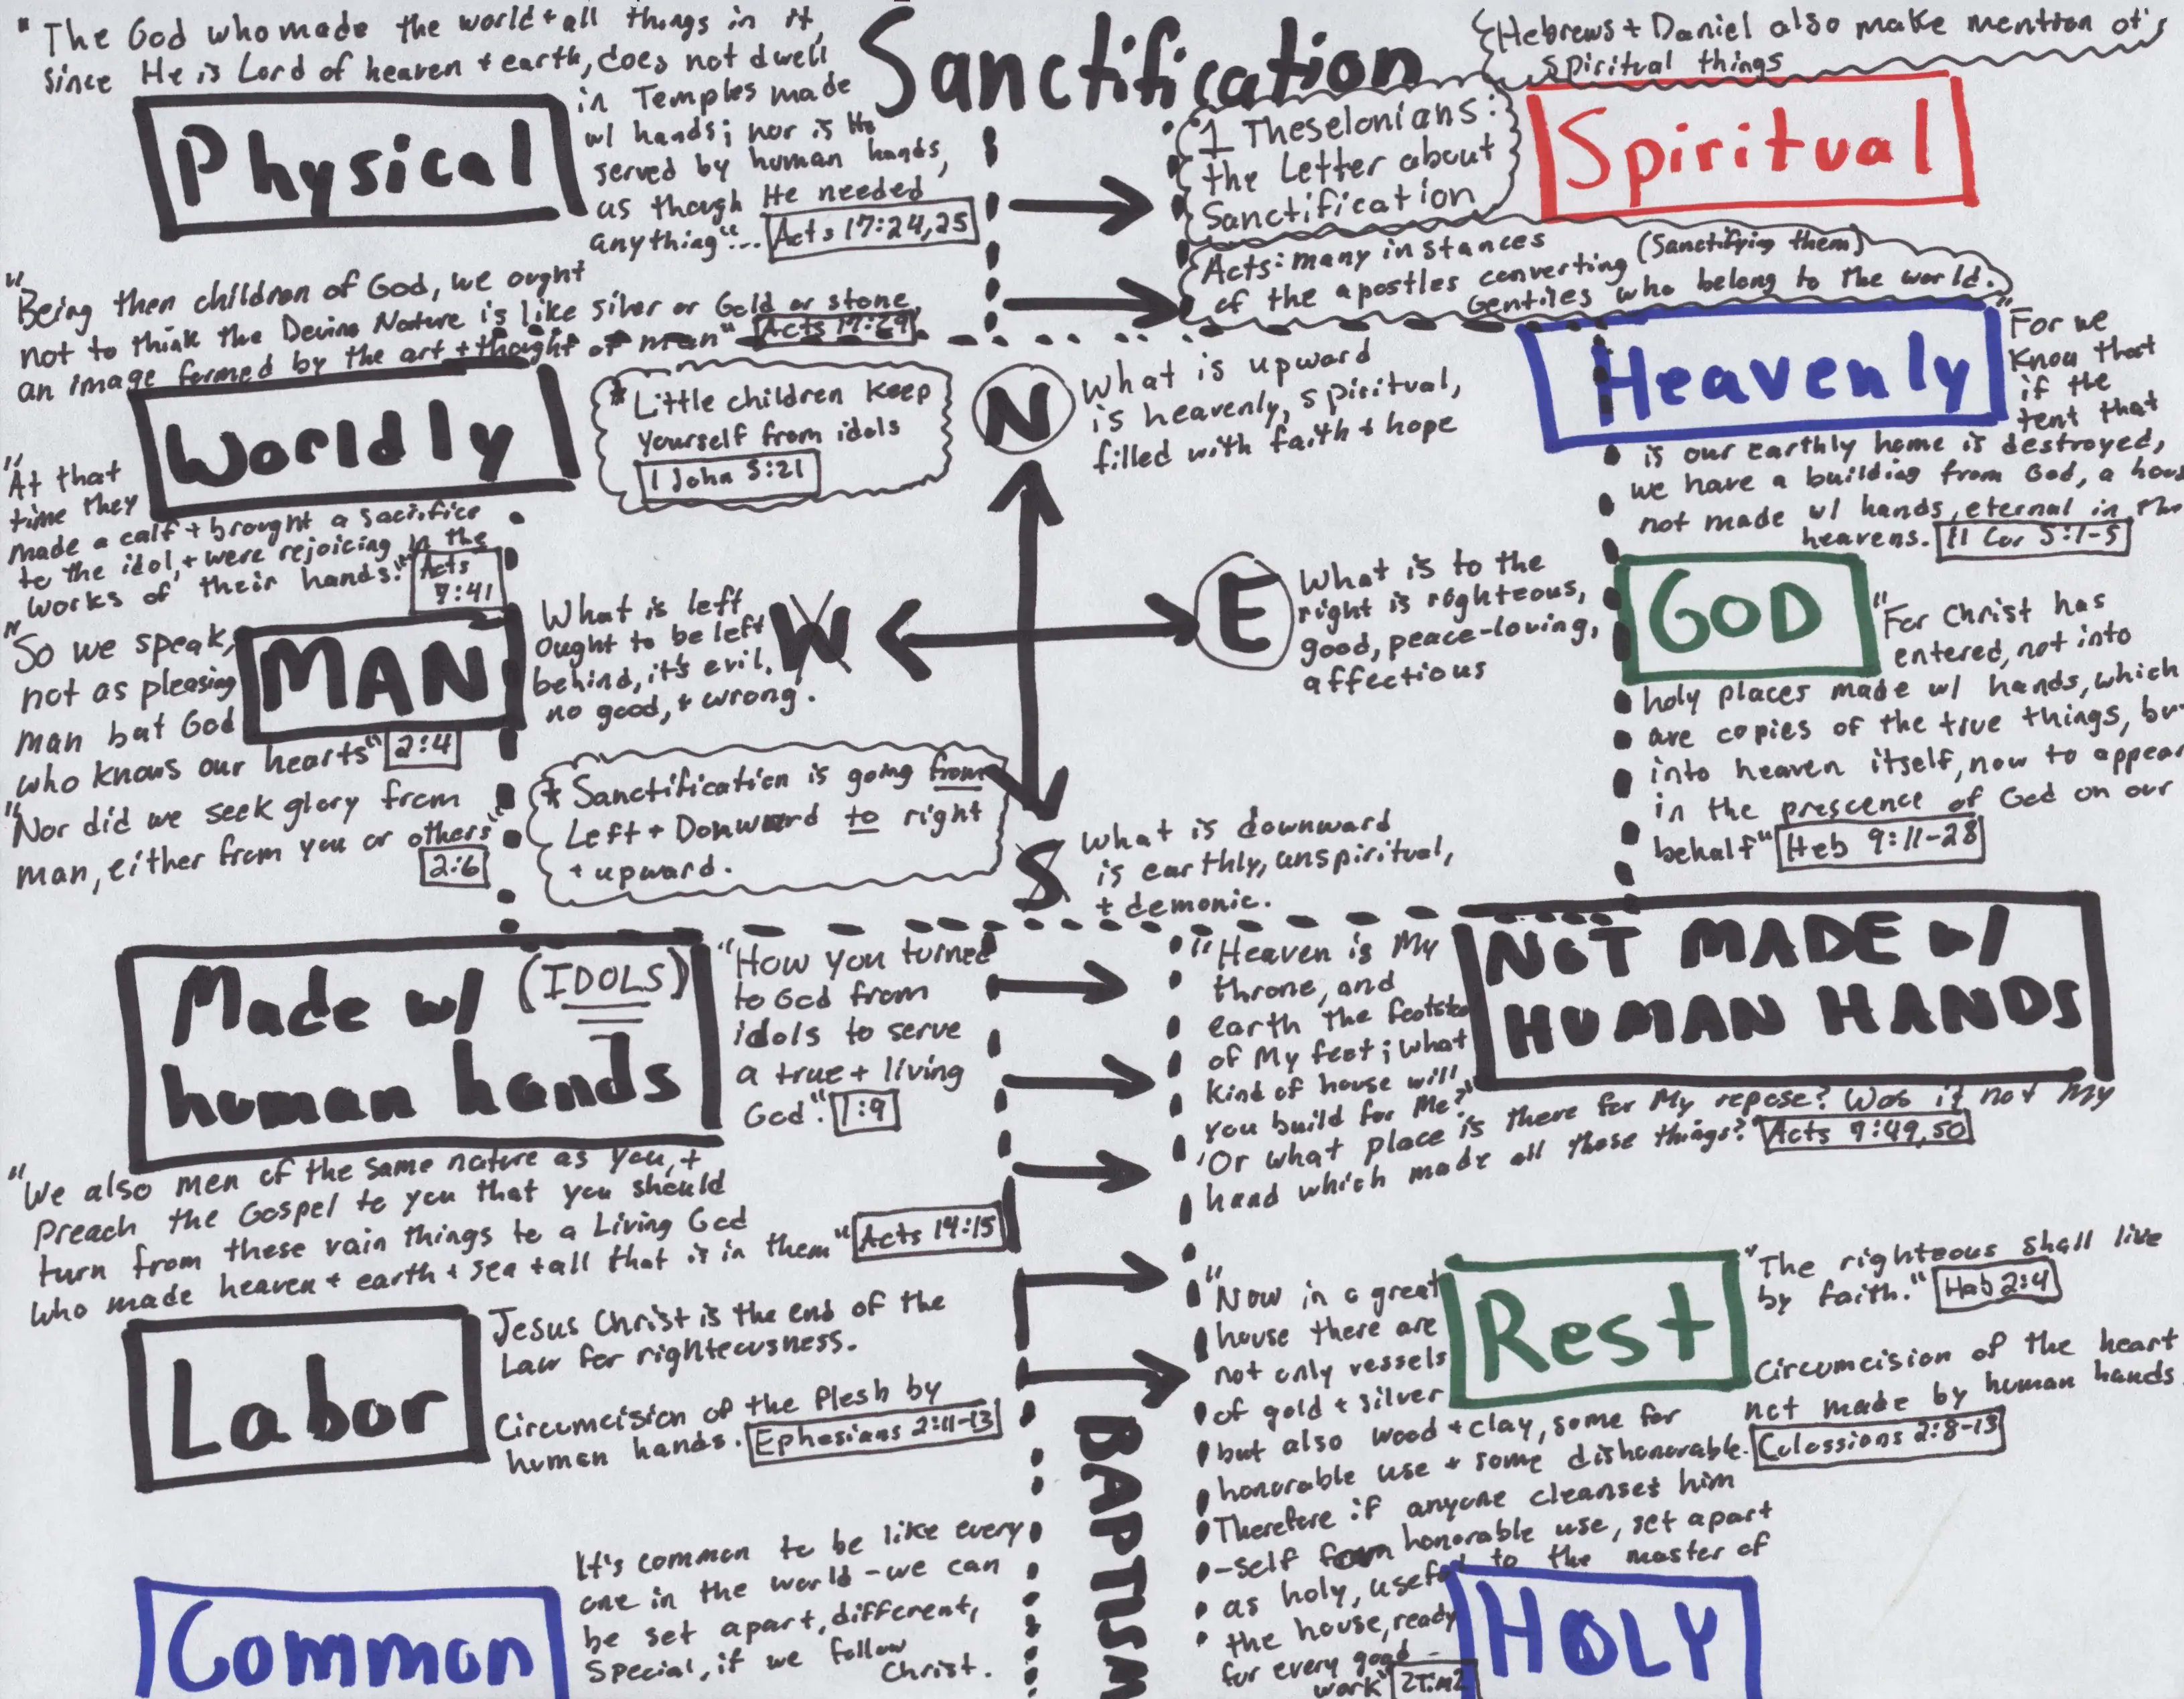 Sanctification
"The God who made the world + all things in it,
since He is Lord of heaven + earth, does not dwell
in Temples made
w/ hands; nor is He
served by human hands,
as though He needed
anything"... Acts 17:24,25
Physical
{Hebrews + Daniel also make mention of
spiritual things
1 Theselonians:
the Letter about
Sanctification
Spiritual
Acts: many instances
of the apostles converting (Sanctifying them)
Gentiles who belong to the world.
"Being then children of God, we ought
not to think the Devine Nature is like silver or Gold or stone,
an image formed by the art + thought of man" Acts 17:29
Worldly
* Little children keep
yourself from idols
1 John 5:21
N
What is upward
is heavenly, spiritual,
filled with faith + hope
Heavenly
"For we
know that
if the
tent that
is our earthly home is destroyed,
we have a building from God, a hous
not made w/ hands, eternal in the
heavens. II Cor 5:1-5
"At that
time they
made a calf + brought a sacrifice
to the idol, + were rejoicing in the
works of their hands." Acts
7:41
MAN
"So we speak,
not as pleasing
man but God
who knows our hearts" 2:4
"Nor did we seek glory from
man, either from you or others"
2:6
What is left
ought to be left
behind, it's evil,
no good, + wrong.
W
E
What is to the
right is righteous,
good, peace-loving,
affectious
GOD
"For Christ has
entered, not into
holy places made w/ hands, which
are copies of the true things, but
into heaven itself, now to appear
in the prescence of God on our
behalf" Heb 9:11-28
* Sanctification is going from
Left + Donward to right
+ upward.
S
What is downward
is earthly, unspiritual,
+ demonic.
Made w/ (IDOLS)
human hands
"How you turned
to God from
idols to serve
a true + living
God". 1:9
"Heaven is My
throne, and
earth the footsto
of My feet; what
kind of house will
you build for Me?"
'Or what place is there for My repose? Was it not My
hand which made all these things?" Acts 9:49,50
NOT MADE w/
HUMAN HANDS
"We also men of the same nature as you, +
preach the Gospel to you that you should
turn from these vain things to a Living God
who made heaven + earth + sea + all that is in them" Acts 14:15
Labor
Jesus Christ is the end of the
Law for righteousness.
Circumcision of the flesh by
human hands. Ephesians 2:11-13
BAPTISM
"Now in a great
house there are
not only vessels
of gold + silver
but also wood + clay, some for
honorable use + some dishonorable.
Therefore if anyone cleanses him
-self from honorable use, set apart
as holy, useful to the master of
the house, ready
for every good
work" 2Tim2
Rest
"The righteous shall live
by faith." Hab 2:4
Circumcision of the heart
not made by human hands.
Colossians 2:8-13
Common
It's common to be like every
one in the world - we can
be set apart, different,
special, if we follow
Christ.
HOLY